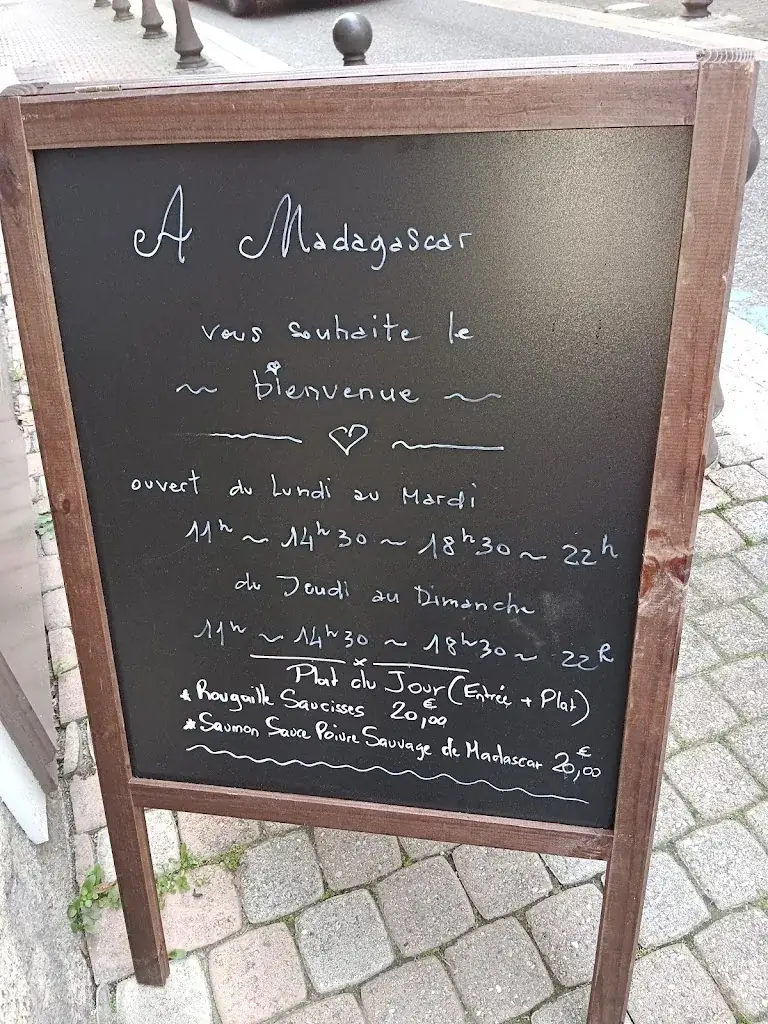 A Madagascar
vous souhaite le
~ bienvenue ~
ouvert du Lundi au Mardi
11h ~ 14h30 ~ 18h30 ~ 22h
du Jeudi au Dimanche
11h ~ 14h30 ~ 18h30 ~ 22h
Plat du Jour (Entrée + Plat)
* Rougaille Saucisses 20,00€
* Saumon Sauce Poivre Sauvage de Madascar 20,00€